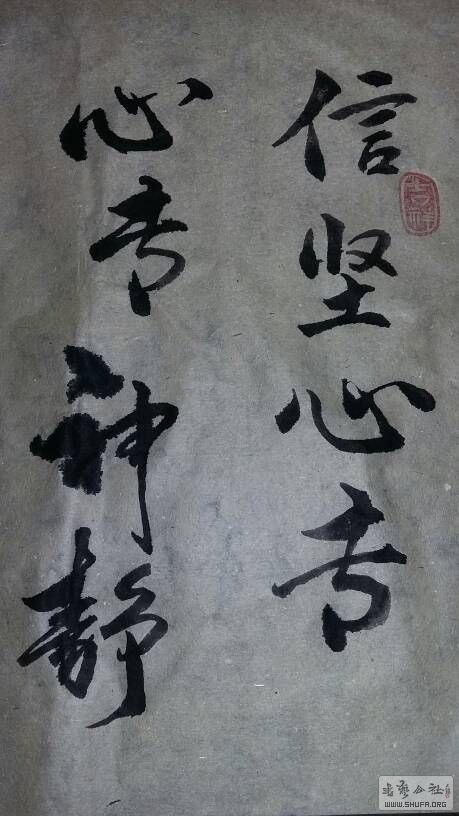 信坚心专
心专神静
吉祥
WWW.SHUFA.ORG